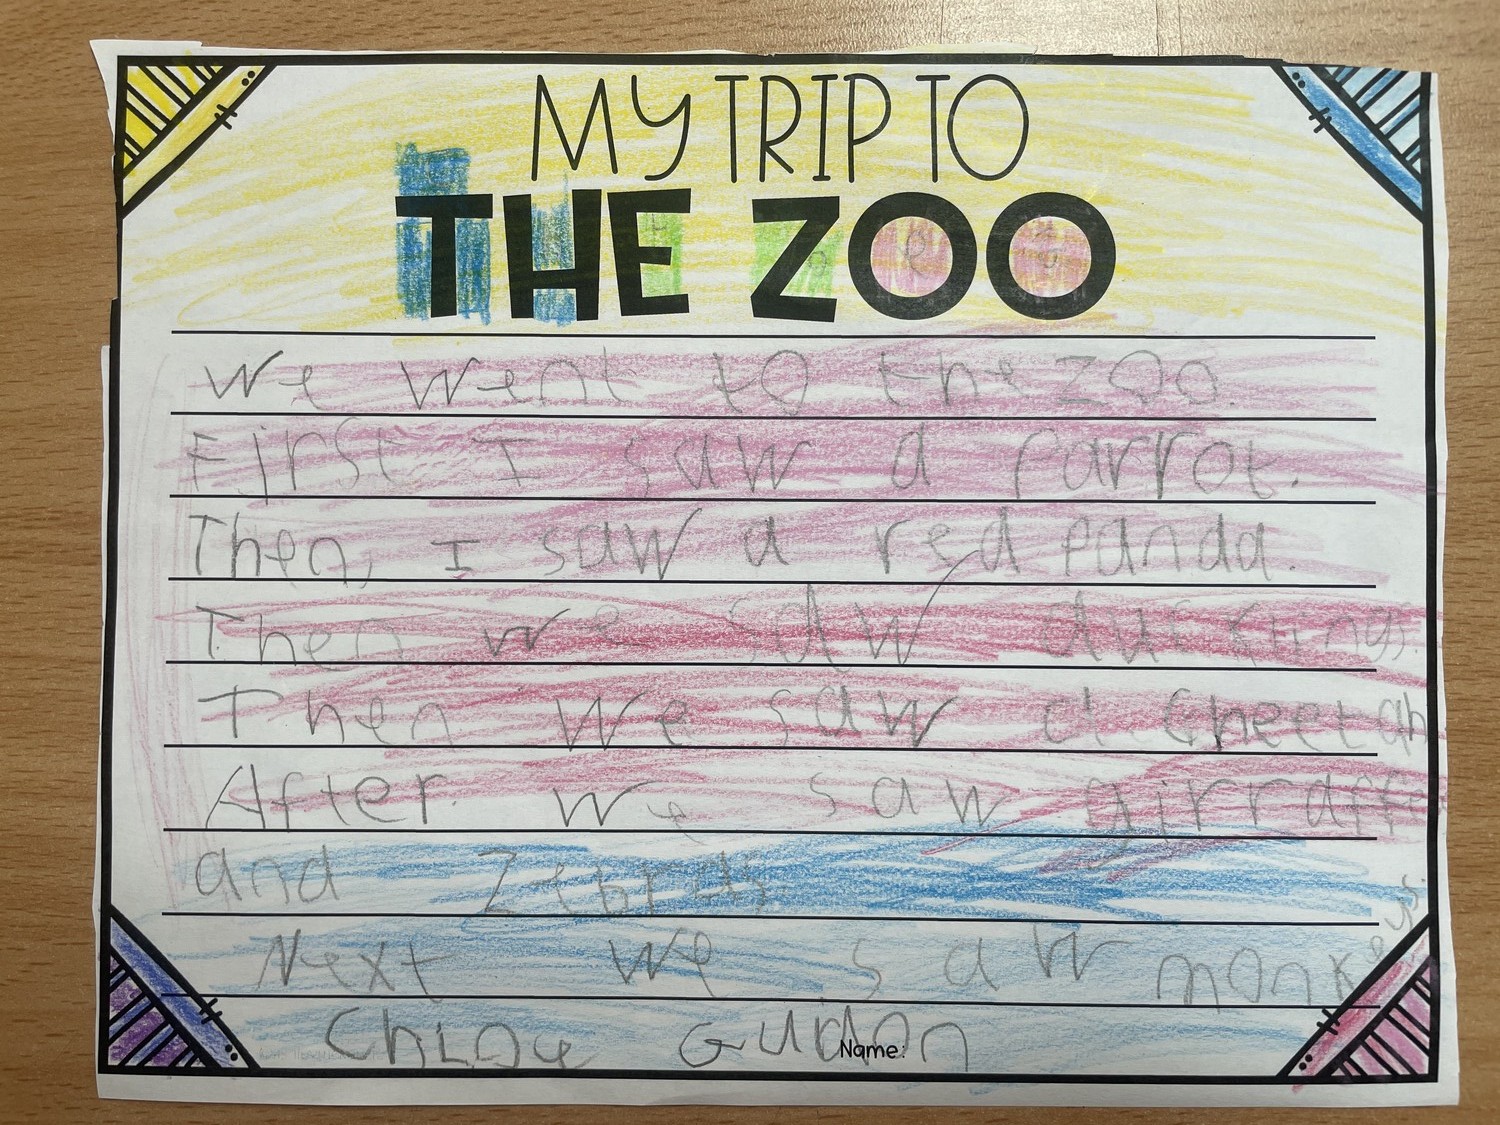 MY TRIP TO
THE ZOO
We went to the zoo.
First I saw a parrot.
Then, I saw a red panda.
Then we saw ducklings.
Then we saw a cheetah
After we saw girraffe
and Zebras.
Next we saw monkeys.
Chloe
Name: